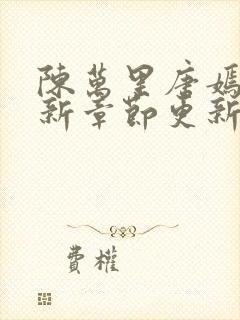 陳萬里唐嫣
新章節更新
費權